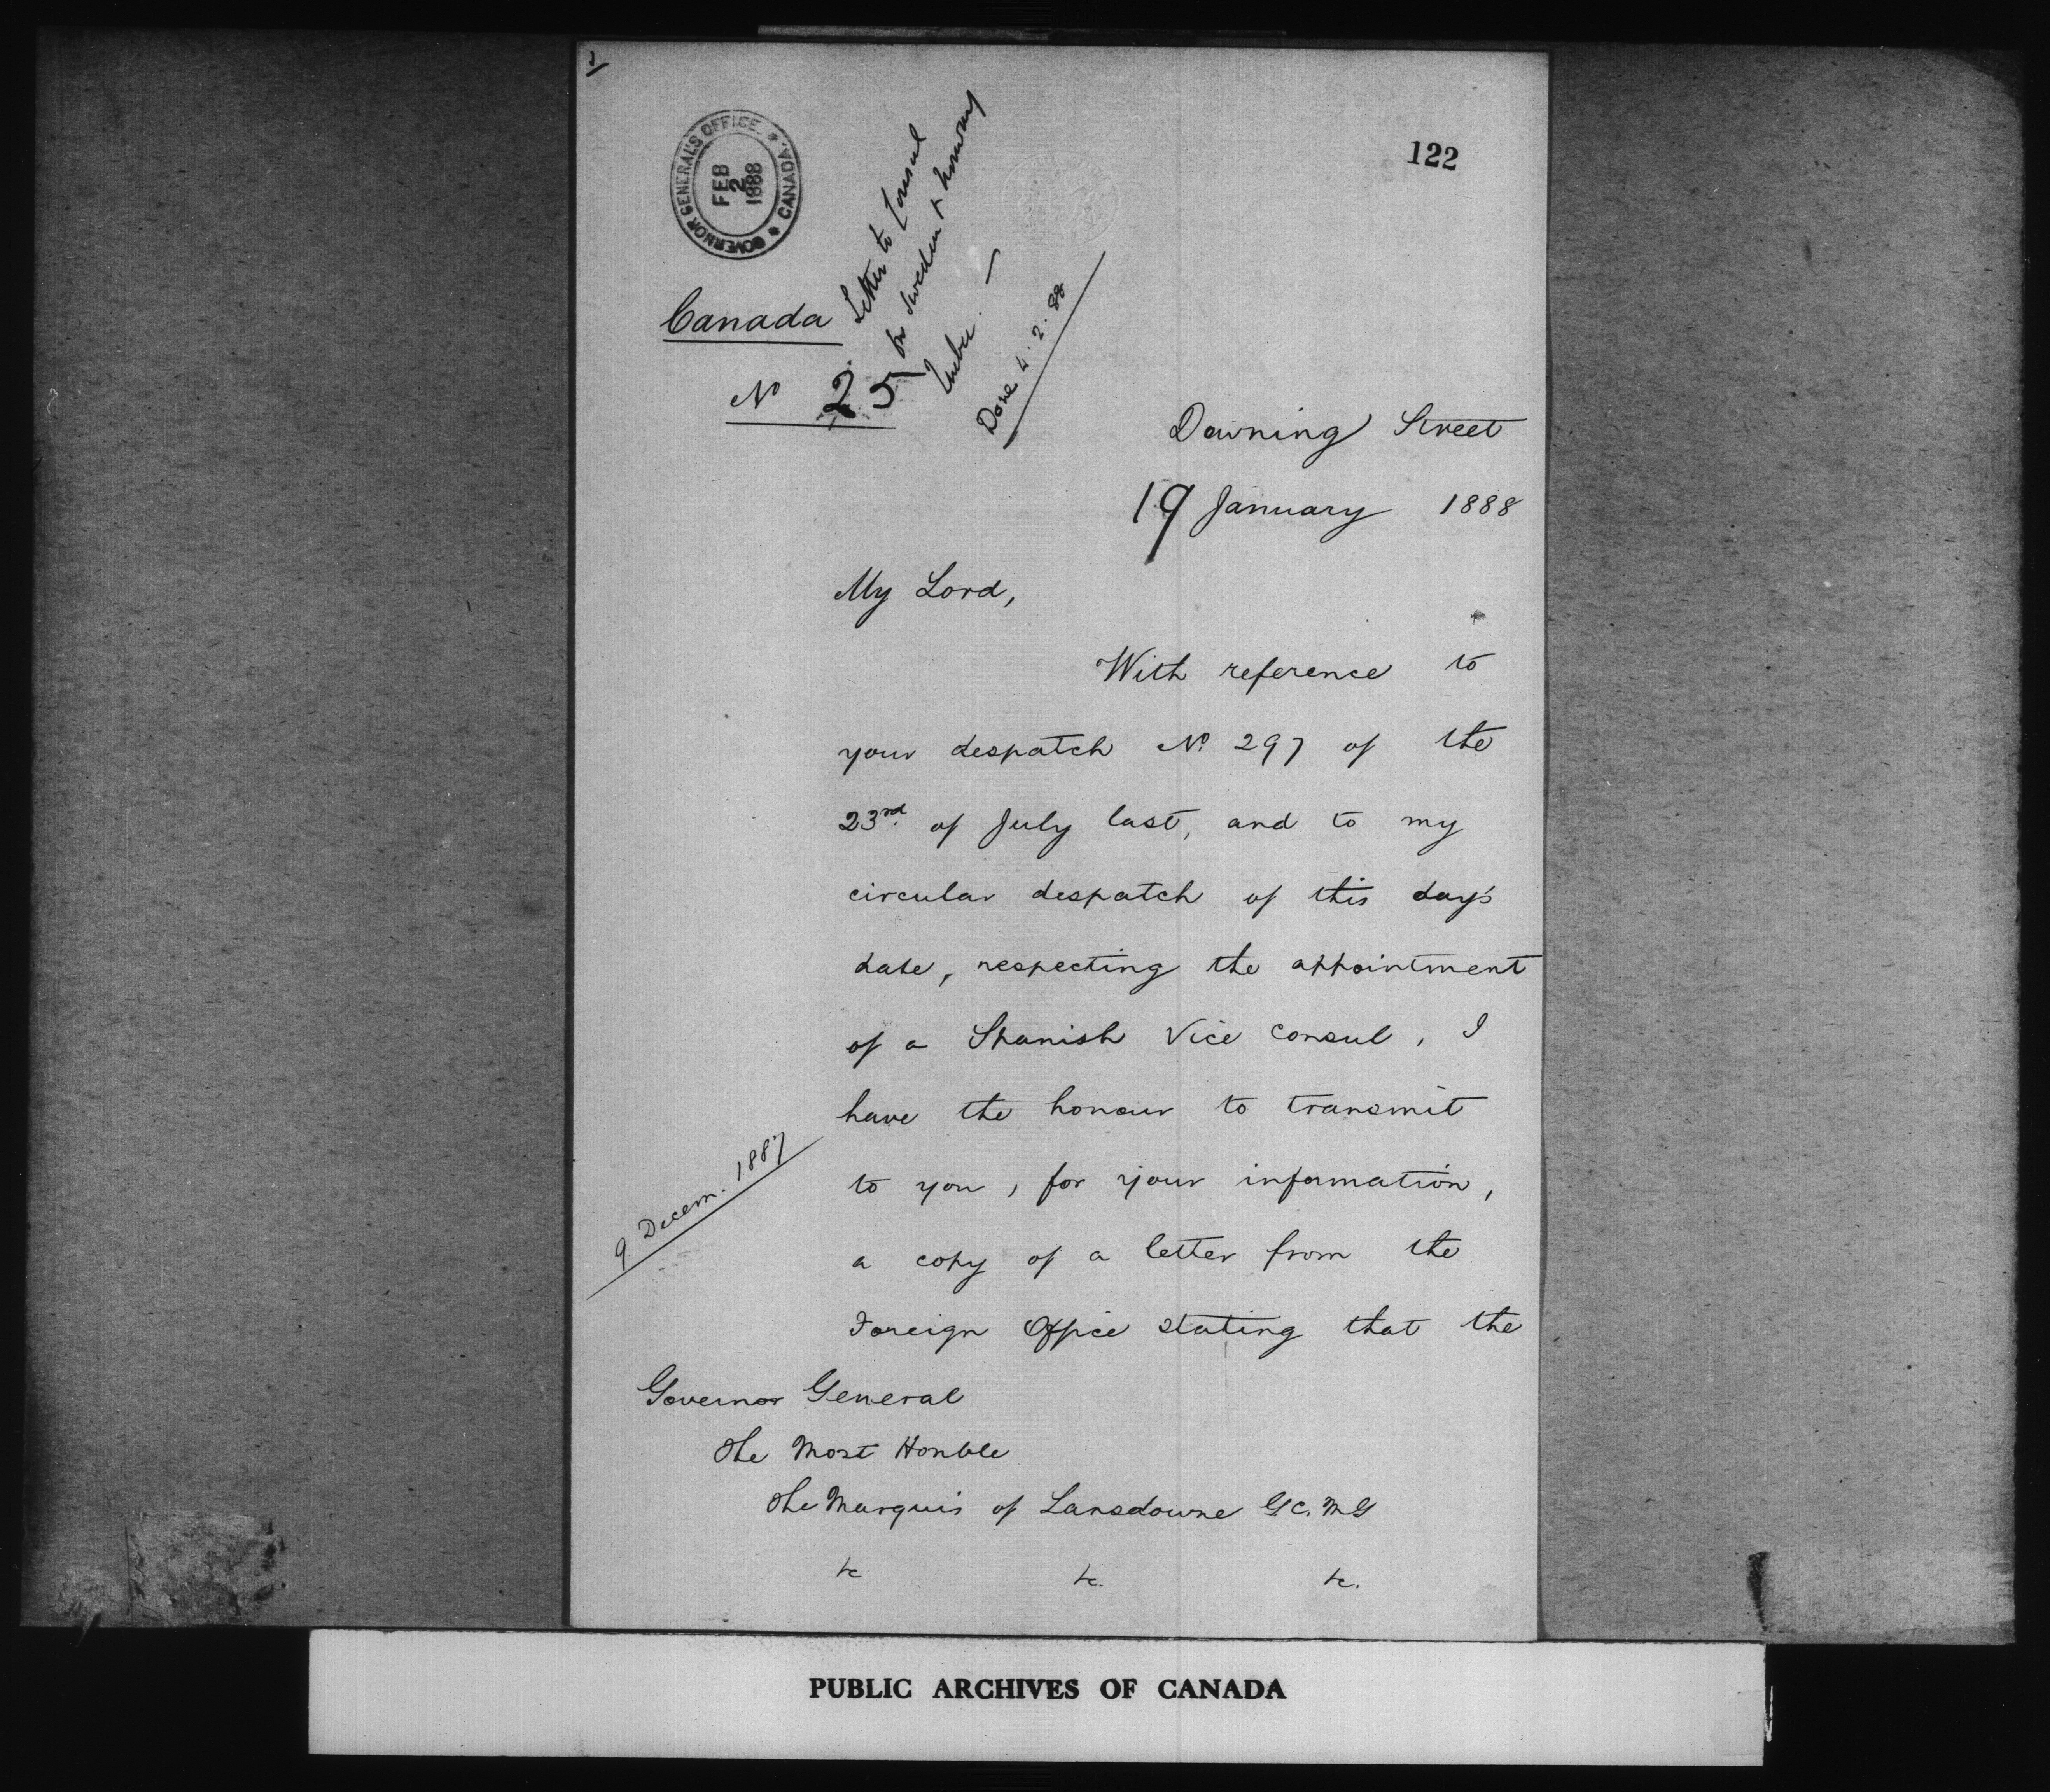 122
GOVERNOR GENERAL'S OFFICE.
CANADA.
FEB
2
1888
Letter to Consul
for Sweden & Norway
Quebec. —
Done 4.2.88
Canada
No 25
Downing Street
19 January 1888
My Lord,
With reference to
your despatch No. 297 of the
23rd. of July last, and to my
circular despatch of this day's
date, respecting the appointment
of a Spanish Vice Consul, I
have the honour to transmit
to you, for your information,
9 Decem. 1887
a copy of a letter from the
Foreign Office stating that the
Governor General
The Most Honble
The Marquis of Lansdowne G.C.M.G
&c &c. &c.
PUBLIC ARCHIVES OF CANADA